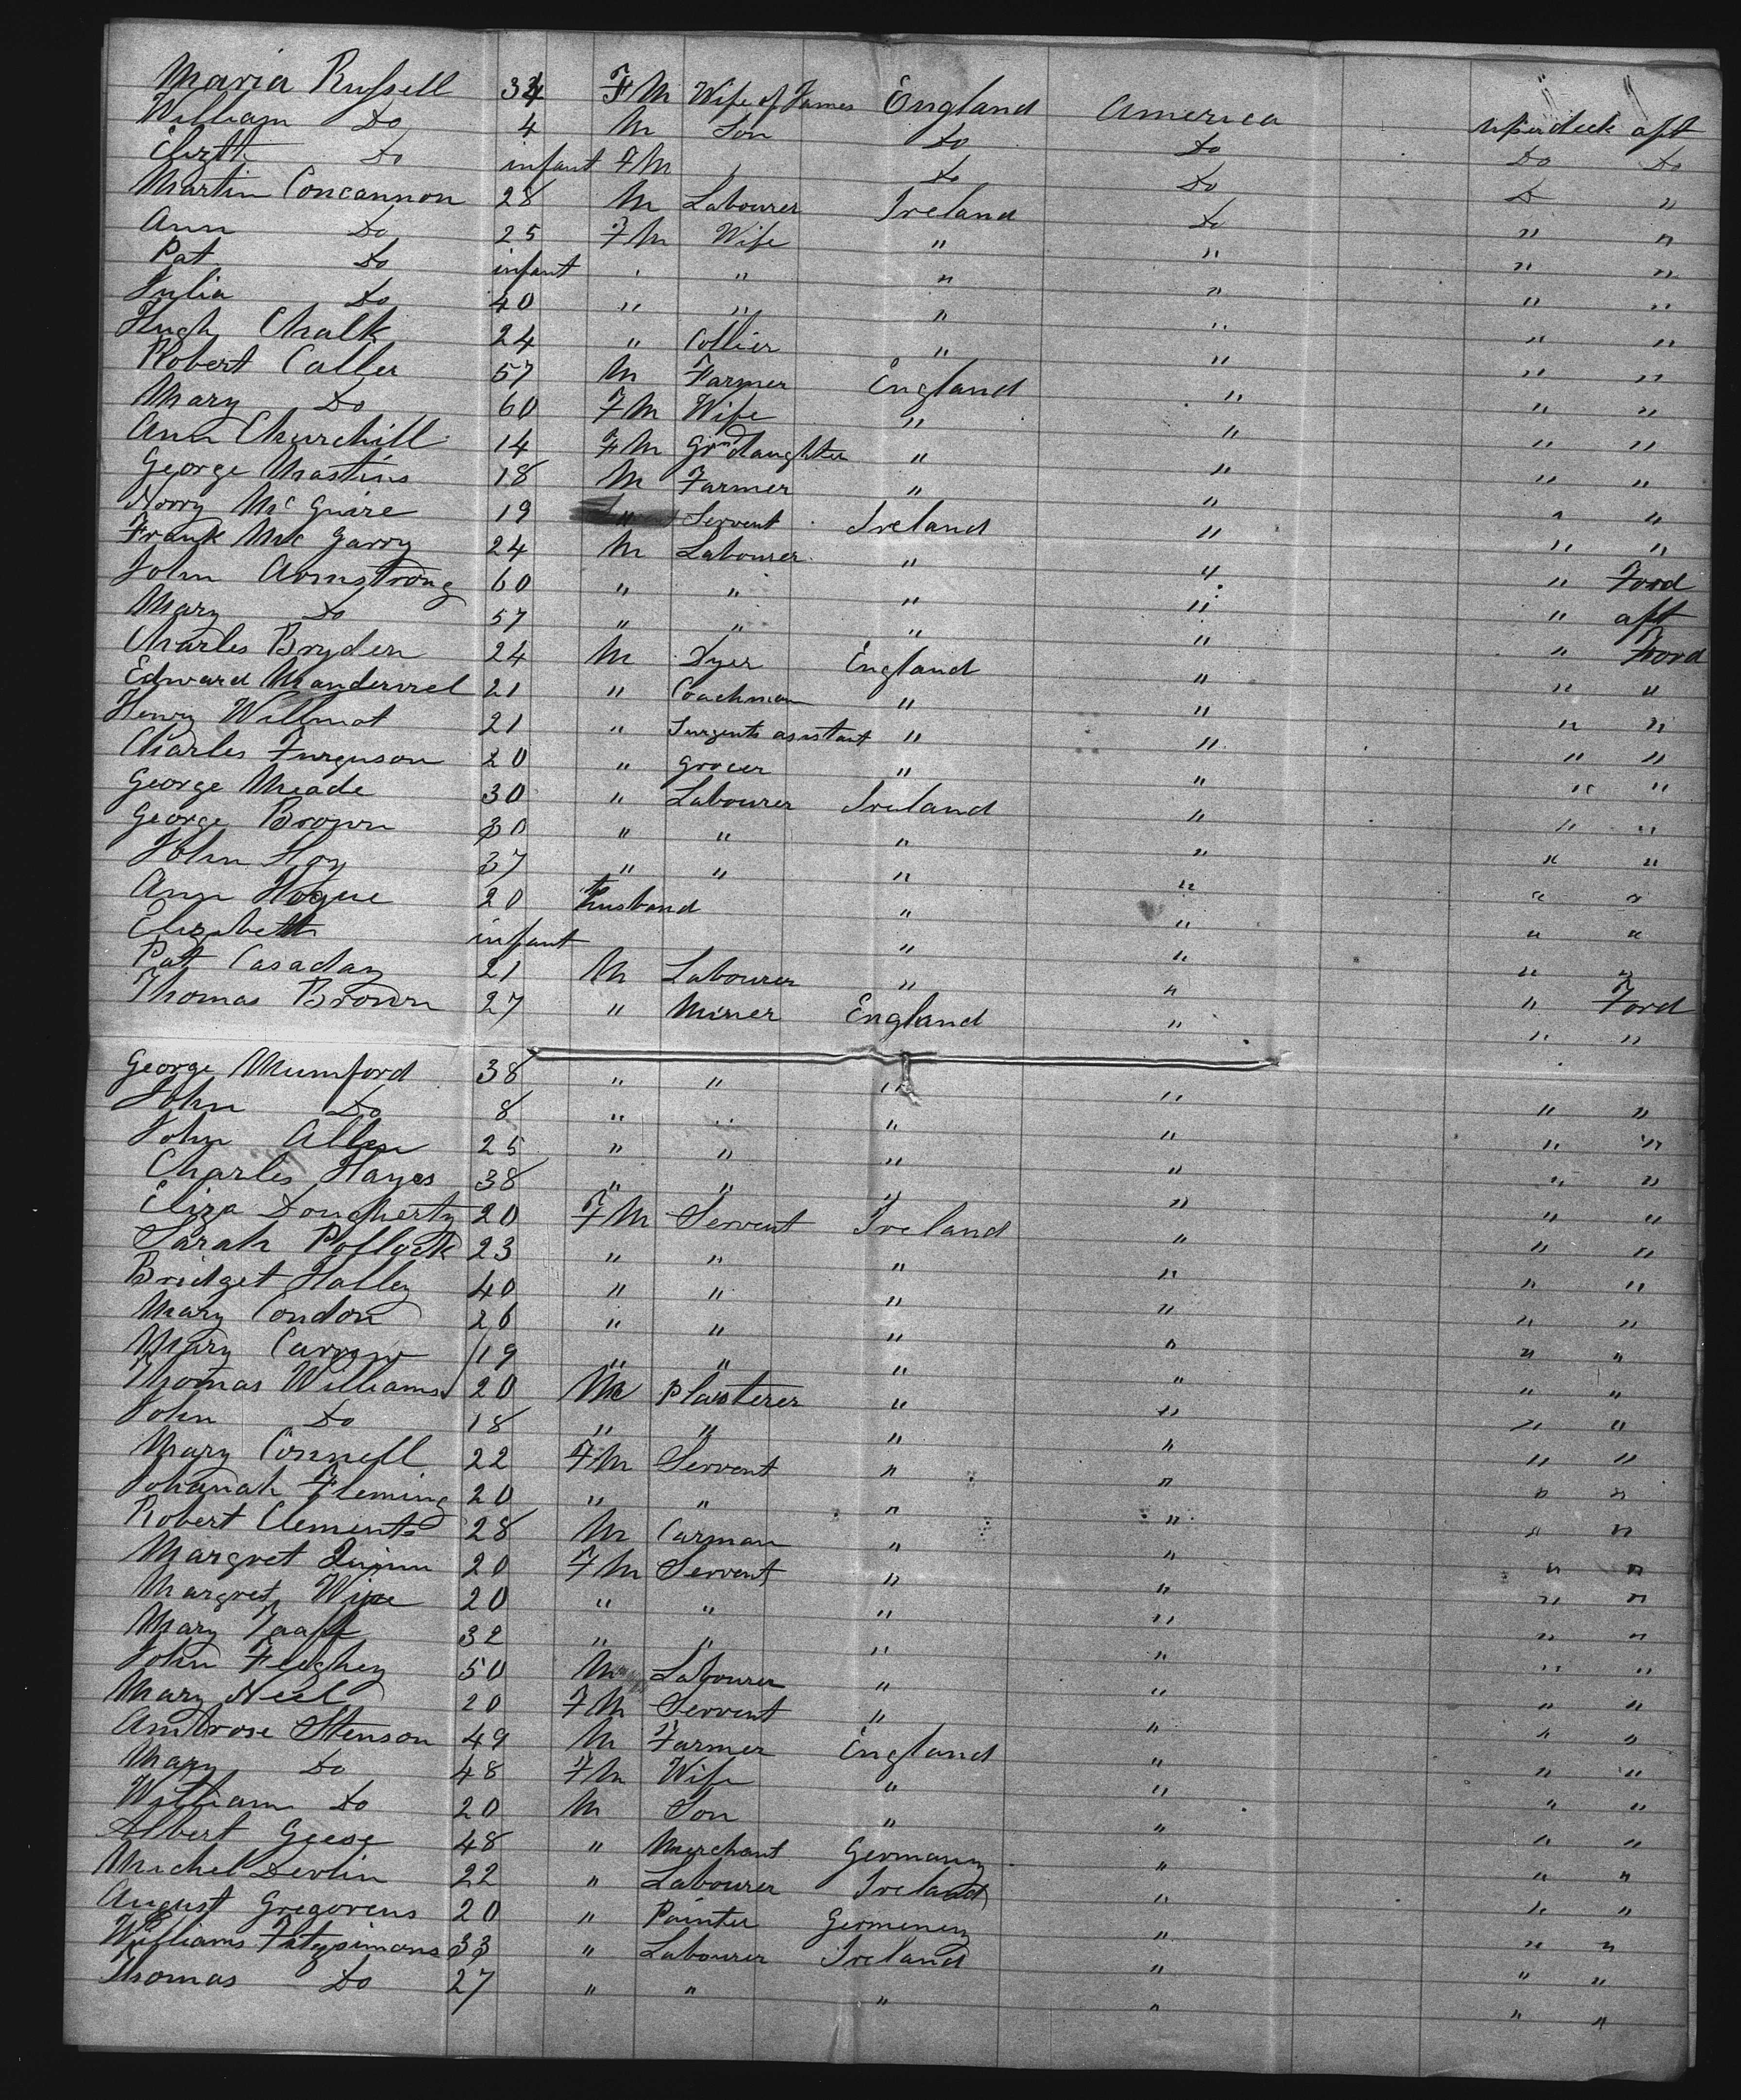 Maria Russell 34 F M Wife of James England America upperdeck aft
William Do 4 M Son Do Do Do Do
Elizth Do infant F M " Do Do Do "
Martin Concannon 28 M Labourer Ireland Do " "
Ann Do 25 F M Wife " " " "
Pat Do infant " " " " " "
Julia Do 40 " " " " " "
Hugh Chalk 24 " Collier " " " "
Robert Caller 57 M Farmer England " " "
Mary Do 60 F M Wife " " " "
Ann Churchill 14 F M Grand daughter " " " "
George Mastins 18 M Farmer " " " "
Norry McGuire 19 " Servent Ireland " " "
Frank McGarry 24 M Labourer " " " Ford
John Armstrong 60 " " " " " aft
Mary Do 57 " " " " " Ford
Charles Bryden 24 M Dyer England " " "
Edward Mandervel 21 " Coachman " " " "
Henry Willmot 21 " Surgents asistant " " " "
Charles Furguson 20 " grocer " " " "
George Meade 30 " Labourer Ireland " " "
George Brown 30 " " " " " "
John Hoy 37 " " " " " "
Ann Hogue 20 to husband " " " "
Elizabeth infant " " " "
Pat Casaday 21 M Labourer " " " Ford
Thomas Brown 27 " Miner England " " "
George Mumford 38 " " " " " "
John Do 8 " " " " " "
John Allen 25 " " " " " "
Charles Hayes 38 " " " " " "
Eliza Doucherty 20 F M Servent Ireland " " "
Sarah Pollock 23 " " " " " "
Bridget Holley 40 " " " " " "
Mary Condon 26 " " " " " "
Mary 19 " " " " " "
Thomas Williams 20 M Plaisterer " " " "
John Do 18 " " " " " "
Mary Connell 22 F M Servent " " " "
Johanah Fleming 20 " " " " " "
Robert Clements 28 M Carman " " " "
Margret Quinn 20 F M Servent " " " "
Margret 20 " " " " " "
Mary Taaff 32 " " " " " "
John Feeghey 50 M Labourer " " " "
Mary Neel 20 F M Servent " " " "
Ambrose Stenson 49 M Farmer England " " "
Mary Do 48 F M Wife " " " "
William Do 20 M Son " " " "
Albert Geese 48 " Merchant Germany " " "
Michel Devlin 22 " Labourer Ireland " " "
August Gregoreus 20 " Painter Germeney " " "
Williams Fitzsimons 33 " Labourer Ireland " " "
Thomas Do 27 " " " " " "